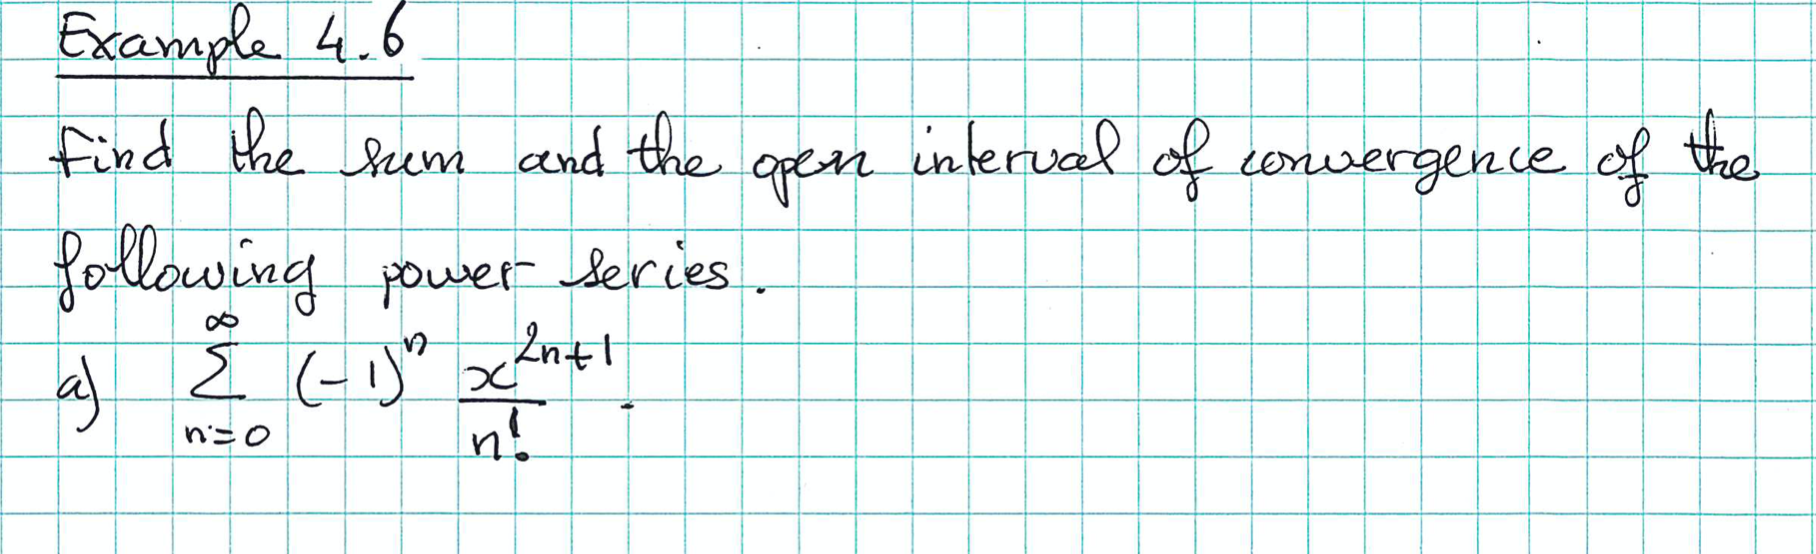 Example 4.6
Find the sum and the open interval of convergence of the
following power series.
a) $\sum_{n=0}^{\infty} (-1)^n \frac{x^{2n+1}}{n!}$.